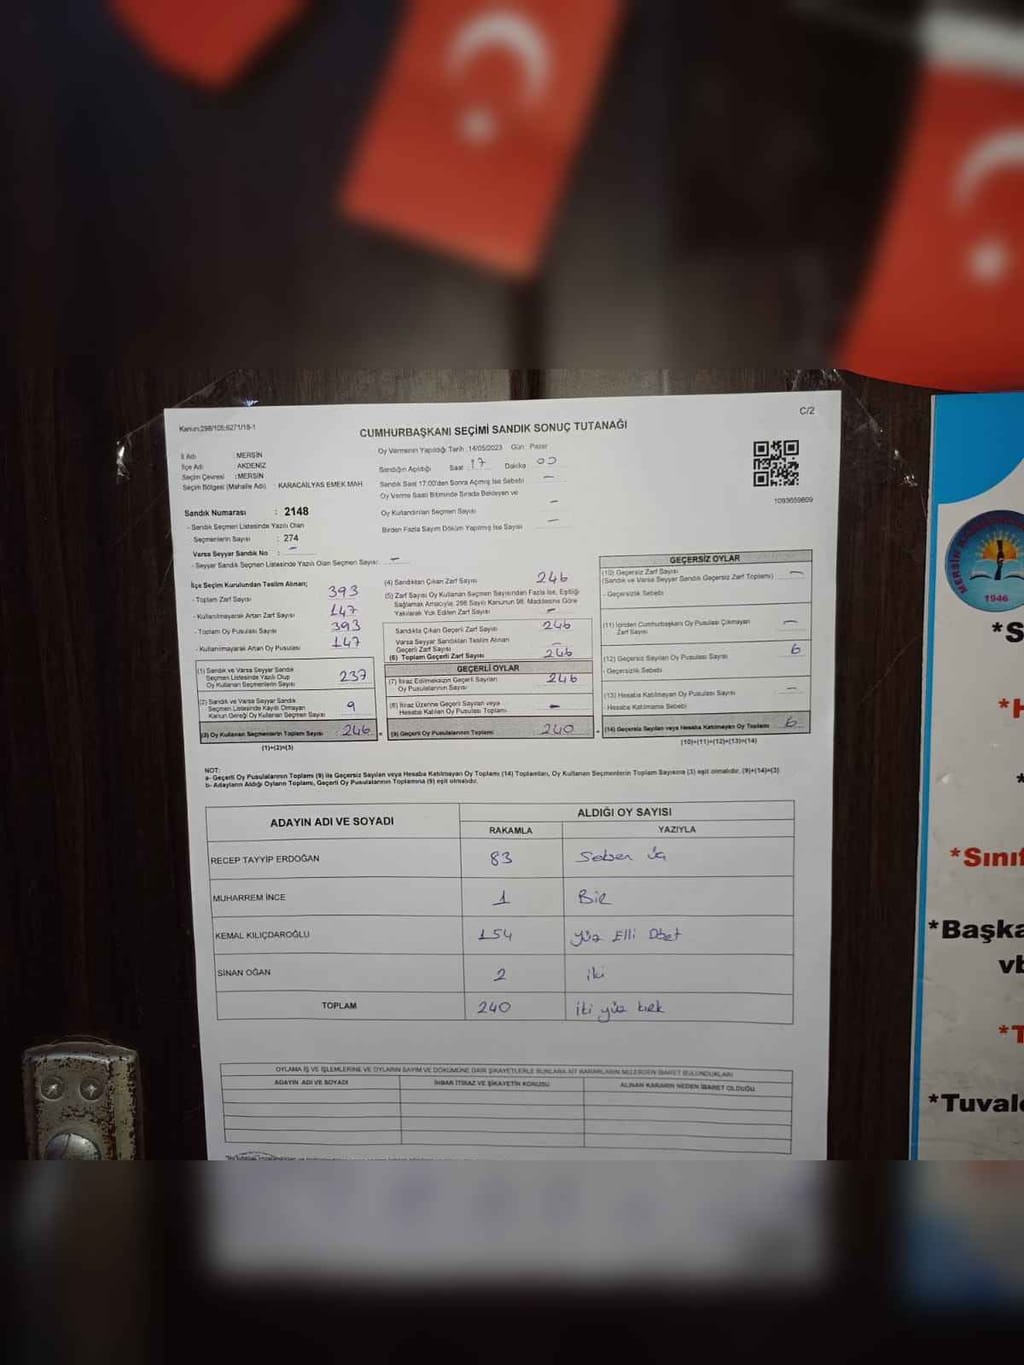 Kanun:298/105;6271/18-1
C/2
CUMHURBAŞKANI SEÇİMİ SANDIK SONUÇ TUTANAĞI
İl Adı : MERSİN
İlçe Adı : AKDENİZ
Seçim Çevresi : MERSİN
Seçim Bölgesi (Mahalle Adı) : KARACAİLYAS EMEK MAH.
Oy Vermenin Yapıldığı Tarih :14/05/2023 Gün : Pazar
Sandığın Açıldığı Saat 17 Dakika 00
Sandık Saat 17:00'den Sonra Açılmış İse Sebebi –
Oy Verme Saati Bitiminde Sırada Bekleyen ve
Oy Kullandırılan Seçmen Sayısı –
Birden Fazla Sayım Döküm Yapılmış İse Sayısı –
1093659809
Sandık Numarası : 2148
- Sandık Seçmen Listesinde Yazılı Olan
Seçmenlerin Sayısı : 274
Varsa Seyyar Sandık No : –
- Seyyar Sandık Seçmen Listesinde Yazılı Olan Seçmen Sayısı: –
İlçe Seçim Kurulundan Teslim Alınan;
- Toplam Zarf Sayısı 393
- Kullanılmayarak Artan Zarf Sayısı 147
- Toplam Oy Pusulası Sayısı 393
- Kullanılmayarak Artan Oy Pusulası 147
(1) Sandık ve Varsa Seyyar Sandık
Seçmen Listesinde Yazılı Olup
Oy Kullanan Seçmenlerin Sayısı 237
(2) Sandık ve Varsa Seyyar Sandık
Seçmen Listesinde Kayıtlı Olmayan
Kanun Gereği Oy Kullanan Seçmen Sayısı 9
(3) Oy Kullanan Seçmenlerin Toplam Sayısı : 246
(1)+(2)=(3)
(4) Sandıktan Çıkan Zarf Sayısı 246
(5) Zarf Sayısı Oy Kullanan Seçmen Sayısından Fazla İse, Eşitliği
Sağlamak Amacıyla, 298 Sayılı Kanunun 98. Maddesine Göre
Yakılarak Yok Edilen Zarf Sayısı –
Sandıkta Çıkan Geçerli Zarf Sayısı 246
Varsa Seyyar Sandıktan Teslim Alınan
Geçerli Zarf Sayısı –
(6) Toplam Geçerli Zarf Sayısı 246
GEÇERLİ OYLAR
(7) İtiraz Edilmeksizin Geçerli Sayılan
Oy Pusulalarının Sayısı 246
(8) İtiraz Üzerine Geçerli Sayılan veya
Hesaba Katılan Oy Pusulaları Toplamı –
(9) Geçerli Oy Pusulalarının Toplamı 240
GEÇERSİZ OYLAR
(10) Geçersiz Zarf Sayısı
(Sandık ve Varsa Seyyar Sandık Geçersiz Zarf Toplamı) –
- Geçersizlik Sebebi
(11) İçinden Cumhurbaşkanı Oy Pusulası Çıkmayan
Zarf Sayısı –
(12) Geçersiz Sayılan Oy Pusulası Sayısı 6
- Geçersizlik Sebebi
(13) Hesaba Katılmayan Oy Pusulası Sayısı –
- Hesaba Katılmama Sebebi
(14) Geçersiz Sayılan veya Hesaba Katılmayan Oy Toplamı 6
(10)+(11)+(12)+(13)=(14)
NOT:
a- Geçerli Oy Pusulalarının Toplamı (9) ile Geçersiz Sayılan veya Hesaba Katılmayan Oy Toplamı (14) Toplamları, Oy Kullanan Seçmenlerin Toplam Sayısına (3) eşit olmalıdır. (9)+(14)=(3)
b- Adayların Aldığı Oyların Toplamı, Geçerli Oy Pusulalarının Toplamına (9) eşit olmalıdır.
ADAYIN ADI VE SOYADI
ALDIĞI OY SAYISI
RAKAMLA YAZIYLA
RECEP TAYYİP ERDOĞAN 83 Seksen üç
MUHARREM İNCE 1 Bir
KEMAL KILIÇDAROĞLU 154 Yüz Elli Dört
SİNAN OĞAN 2 iki
TOPLAM 240 iki yüz kırk
OYLAMA İŞ VE İŞLEMLERİNE VE OYLARIN SAYIM VE DÖKÜMÜNE DAİR ŞİKAYETLERLE BUNLARA AİT KARARLARIN NELERDEN İBARET BULUNDUKLARI
ADAYIN ADI VE SOYADI İHBAR İTİRAZ VE ŞİKAYETİN KONUSU ALINAN KARARIN NEDEN İBARET OLDUĞU
1946
*S
*H
*
*Sınıf
*Başka
vb
*T
*Tuvale